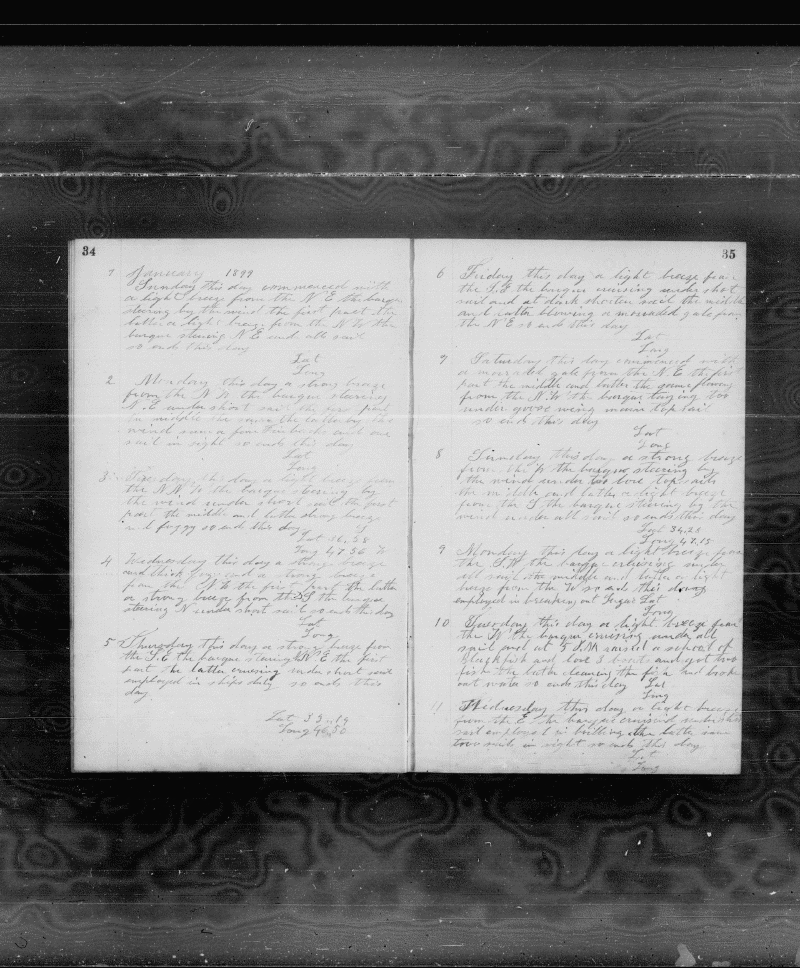 34
1 January 1899
Sunday this day commenced with
a light breeze from the N E the barque
steering by the wind the first part the
latter a light breeze from the N W the
barque steering N E and all sail
so ends this day
Lat
Long
2 Monday this day a strong breeze
from the N W the barque steering
N E under short sail the first part
the middle the same the latter by the
wind and one
sail in sight so ends this day
Lat
Long
3 Tuesday this day a light breeze from
the N N W the barque steering by
the wind under short sail the first
part the middle and latter strong breeze
and foggy so ends this day
Lat 36,38
Long 47 36 W
4 Wednesday this day a strong breeze
and thick fog and a strong breeze
from the N E the first part the latter
a strong breeze from the S the barque
steering N under short sail so ends this day
Lat
Long
5 Thursday this day a strong breeze from
the S.E the barque steering N E the first
part the latter cruising under short sail
employed in ships duty so ends this
day.
Lat 33,,19
Long 46,50
35
6 Friday this day a light breeze from
the S.E the barque cruising under short
sail and at dark shorten sail the middle
and latter blowing a moderate gale from
the N E so ends this day
Lat
Long
7 Saturday this day commenced with
a moderate gale from the N E the first
part the middle and latter the same
from the N.W the barque laying too
under goose wing main top sail
so ends this day
Lat
Long
8 Sunday this day a strong breeze
from the the barque steering by
the wind under two lore top sails
the middle and latter a light breeze
from the S the barque steering by the
wind under all sail so ends this day
Lat 34,28
Long 47,15
9 Monday this day a light breeze from
the S.W the barque cruising under
all sail the middle and latter a light
breeze from the W so ends this day
employed in breaking out Lat
Long
10 Tuesday this day a light breeze from
the W the barque cruising under all
sail and at 5 P.M raised a school of
Blackfish and lore 3 boats and got two
fish the latter cleaning the fish and broke
out water so ends this day Lat
Long
11 Wednesday this day a light breeze
from the E the barque cruising under short
sail employed in boiling the latter same
two sails in sight so ends this day
Lat
Long